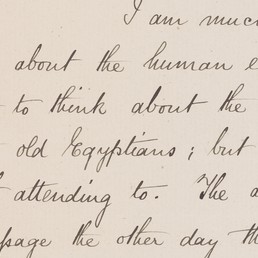 I am much
about the human e
to think about the
old Egyptians; but
attending to. The a
page the other day th